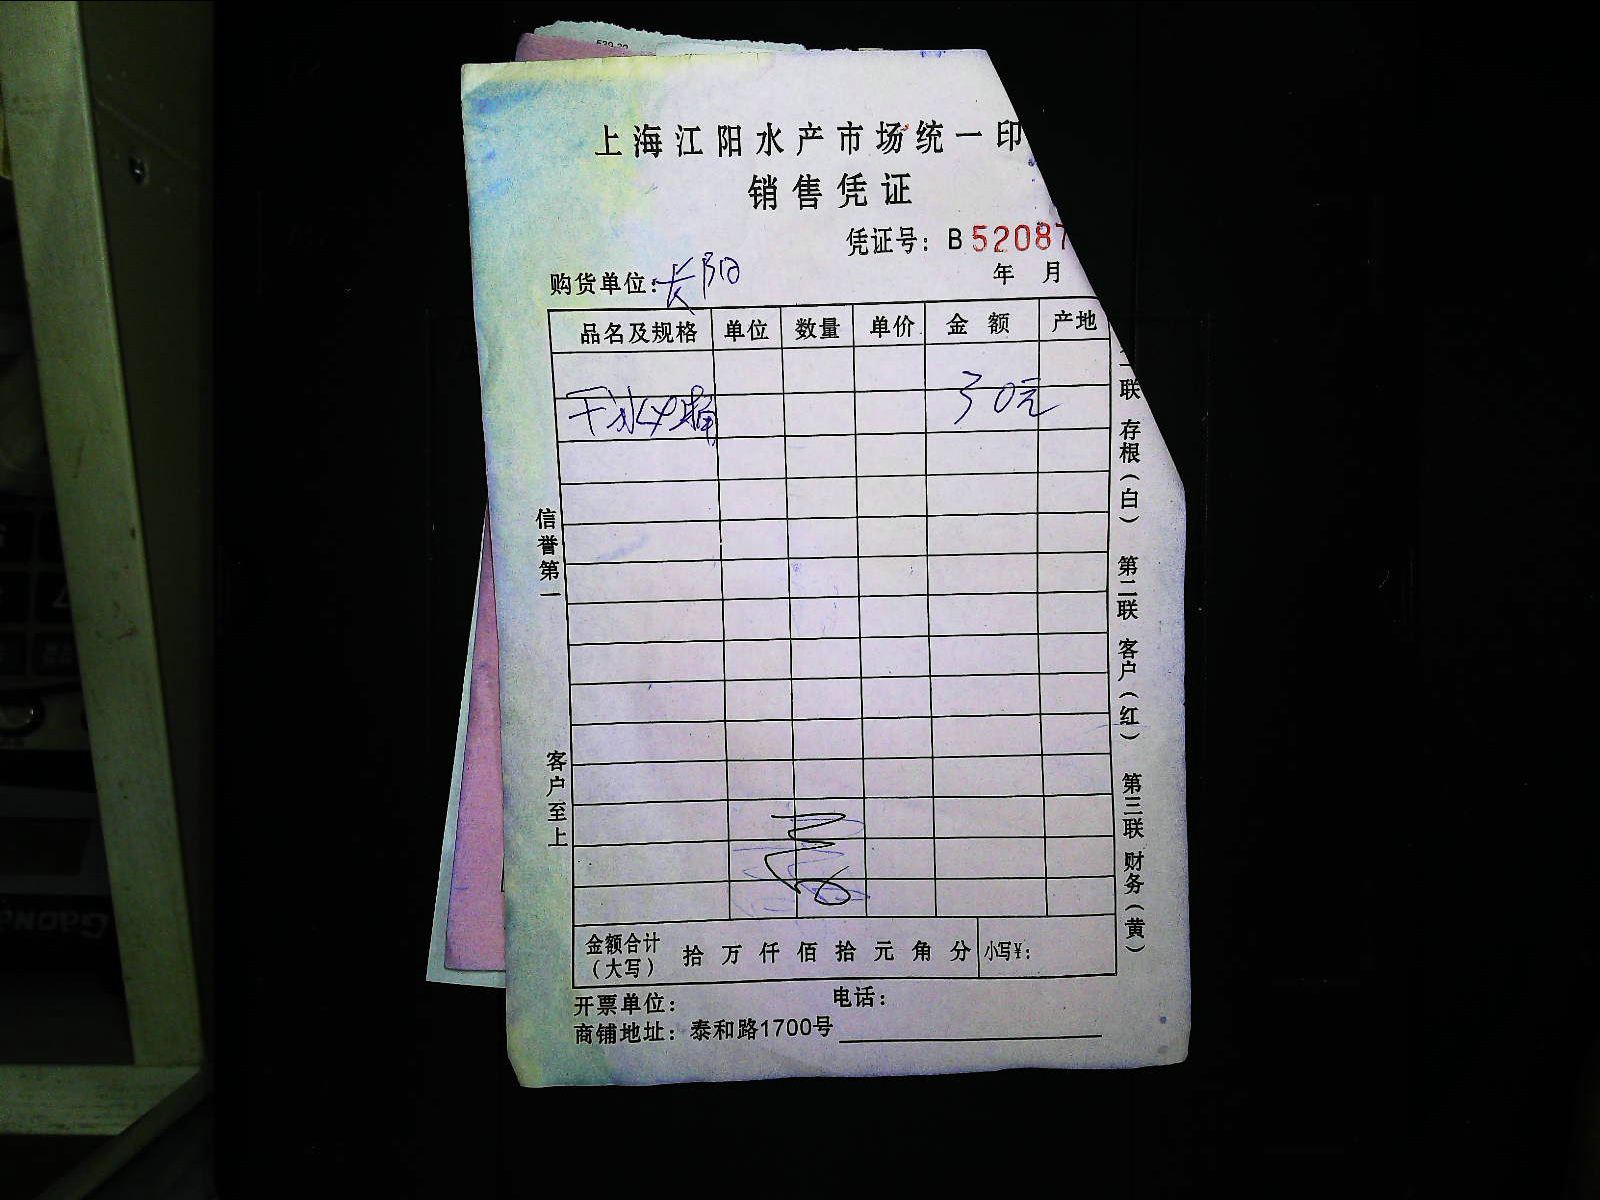 上海江阳水产市场统一印
销售凭证
凭证号：B 52087
年 月
购货单位：长阳
品名及规格 单位 数量 单价 金额 产地
干冰 桶 30元
信誉第一
客户至上
联 存根（白） 第二联 客户（红） 第三联 财务（黄）
金额合计（大写） 拾 万 仟 佰 拾 元 角 分 小写¥：
开票单位： 电话：
商铺地址：泰和路1700号